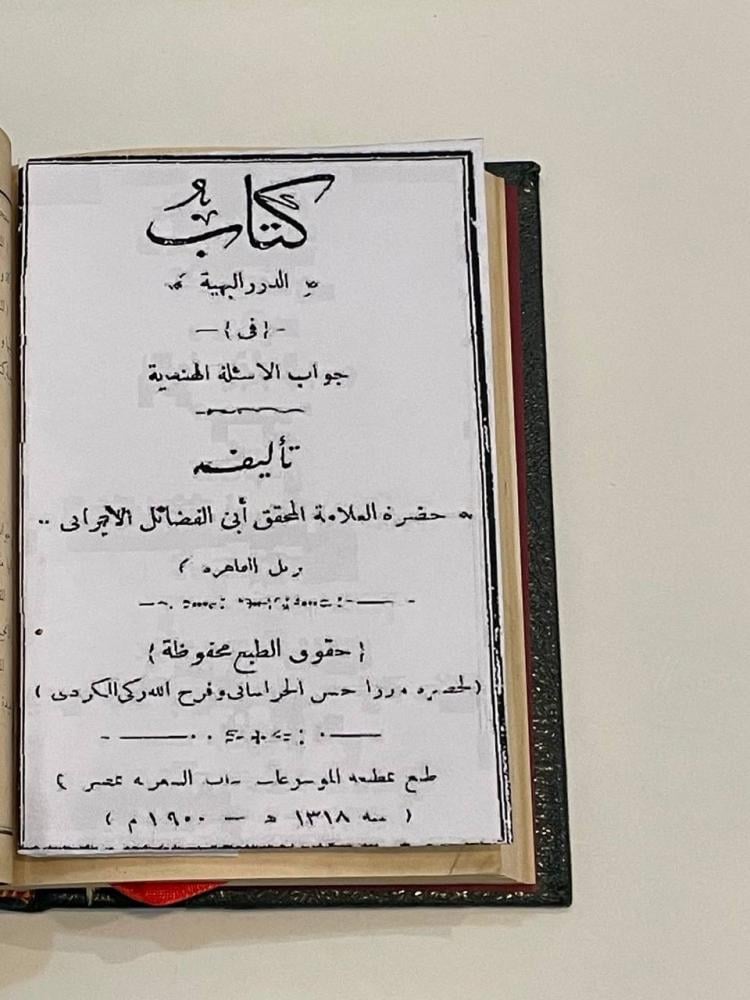 كتاب
الدرر البهية
﴿ فى ﴾
جواب الاسئلة الهندية
تأليف
حضرة العلامة المحقق أبى الفضائل الايرانى
نزيل القاهرة
﴿ حقوق الطبع محفوظة ﴾
( لحضرة ميرزا حسن الخراسانى وفرج الله زكى الكردى )
طبع بمطبعة الموسوعات بباب الشعرية بمصر
( سنة ١٣١٨ ه — ١٩٠٠ م )